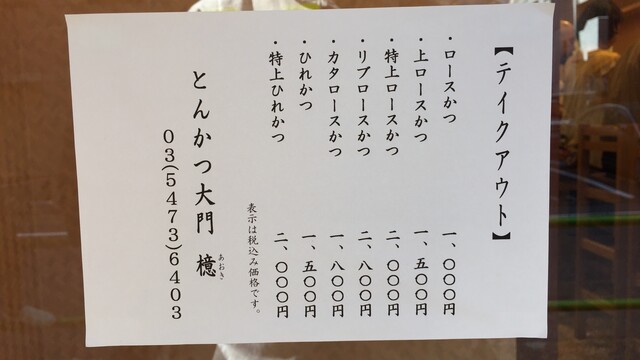 【テイクアウト】
・ロースかつ 一、〇〇〇円
・上ロースかつ 一、五〇〇円
・特上ロースかつ 二、〇〇〇円
・リブロースかつ 二、八〇〇円
・カタロースかつ 一、八〇〇円
・ひれかつ 一、五〇〇円
・特上ひれかつ 二、〇〇〇円
表示は税込み価格です。
とんかつ大門 檍
あおき
０３(５４７３)６４０３